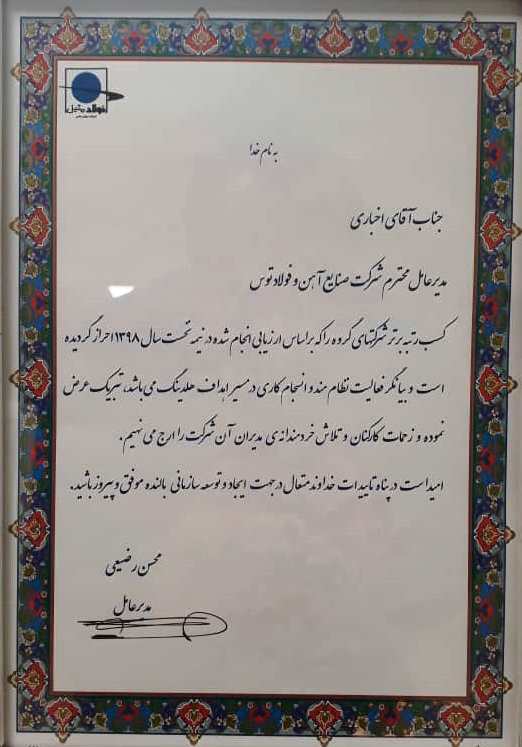 فولاد متیل
به نام خدا
جناب آقای اخباری
مدیرعامل محترم شرکت صنایع آهن و فولاد توس
کسب رتبه برتر شرکتهای گروه را که براساس ارزیابی انجام شده در نیمه نخست سال ۱۳۹۸ احراز گردیده
است و بیانگر فعالیت نظام مند و انسجام کاری در مسیر اهداف هلدینگ می باشد، تبریک عرض
نموده و زحمات کارکنان و تلاش خردمندانه ی مدیران آن شرکت را ارج می نهیم.
امید است در پناه تاییدات خداوند متعال در جهت ایجاد و توسعه سازمانی بالنده موفق و پیروز باشید.
محسن رضیعی
مدیرعامل